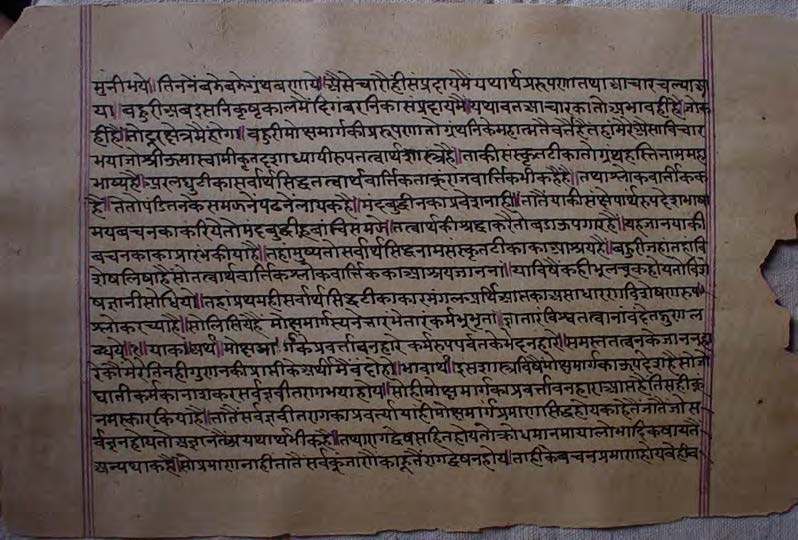 मुनीभये॥तिननेंबडेबडेग्रंथबणाये॥ऐसेचारौहीसंप्रदायमैंयथार्थप्ररूपणातथाआचारचल्याआ
या॥बहुरीअबइसनिकृष्टकालमैंदिगंबरनिकासंप्रदायमैंयथावतआचारकातोअभावहीहै॥जोक
हींहै॥तोदूरक्षेत्रमेंहोगा॥बहुरीमोक्षमार्गकीप्ररूपणातोग्रंथनिकेमहात्मतैंवर्तेहैतहांमेरैऐसाविचार
भयाजोश्रीऊमास्वामीकृतदशाध्यायीरूपतत्वार्थशास्त्रहै॥ताकीसंस्कृतटीकातोगंधहस्तिनाममहा
भाष्यहै॥अरलघुटीकासर्वार्थसिद्धतत्वार्थवार्तिकताकूंराजवार्तिकभीकहैहै॥तथाश्लोकवार्तिकक
है॥तेतोपंडितनकेसमझनेपढनेलायकहै॥मंदबुद्धीनकाप्रवेशनाही॥तातैंयाकीसंक्षेपार्थरूपदेशभाषा
मयवचनकाकरियेतोमंदबुद्धीहूवांचिसमजे॥तत्वार्थकीश्रद्धाकरैतोबडाऊपगारहै॥यहजानयाकी
वचनकाकाप्रारंभकीयाहै॥तहांमुष्यतोसर्वार्थसिद्धनामसंस्कृतटीकाकाआश्रयहै॥बहुरीजहांतहांवि
शेषलिषाहैसोतत्वार्थवार्तिकश्लोकवार्तिककाआश्रयजानना॥याविषैंकहीभूलचूकहोयतोविशे
षज्ञानीसोधियो॥तहाप्रथमहीसर्वार्थसिद्धटीकाकारमंगलअर्थिआप्तकाअसाधारणविशेषणरूप
श्लोकरच्याहै॥सोलिखियेहै॥मोक्षमार्गस्यनेत्तारंभेतारंकर्मभूभृतां॥ज्ञातारंविश्वतत्वानांवंदेतद्गुणल
ब्धये॥१॥याकाअर्थ॥मोक्षमार्गकेप्रवर्त्तावनहारेकर्मरूपपर्वतकेभेदनहारे॥समस्ततत्वनकेजाननहा
रेकौंमेरेतिनहीगुणनकीप्राप्तीकाअर्थीमैंवंदोहौं॥भावार्थ॥इसशास्त्रविषैंमोक्षमार्गकाउपदेशहैसोजो
घातीकर्मकानाशकरसर्वज्ञवीतरागभयाहोय॥सोहीमोक्षमार्गकाप्रवर्त्तावनहाराआप्तहैतिसहीकूं
नमस्कारकियाहै॥तातैंसर्वज्ञवीतरागकाप्रवर्त्यायाहीमोक्षमार्गप्रमाणसिद्धहोयकाहेतैंजातैंजोस
र्वज्ञनहोयतोअज्ञानतैंअयथार्थभीकहै॥तथारागद्वेषसहितहोयतोक्रोधमानमायालोभादिकषायतैं
अन्यथाकहै॥सोप्रमाणनाहीतातैसर्वकूंजाणैंकाहूतैंरागद्वेषनहोय॥ताहीकेवचनप्रमाणहोयवेहीव